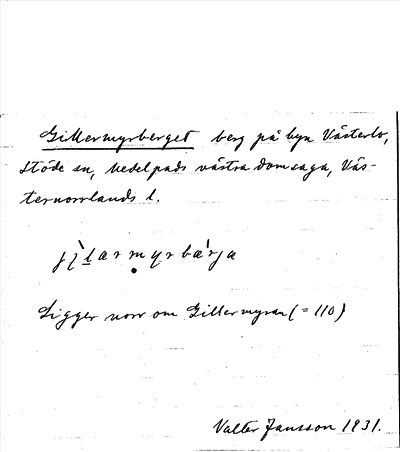 Gillermyrberget berg på byn Västerlo,
Stöde sn, Medelpads västra domsaga, Väs-
ternorrlands l.
Ligger norr om Gillermyran (= 110)
Valter Jansson 1931.